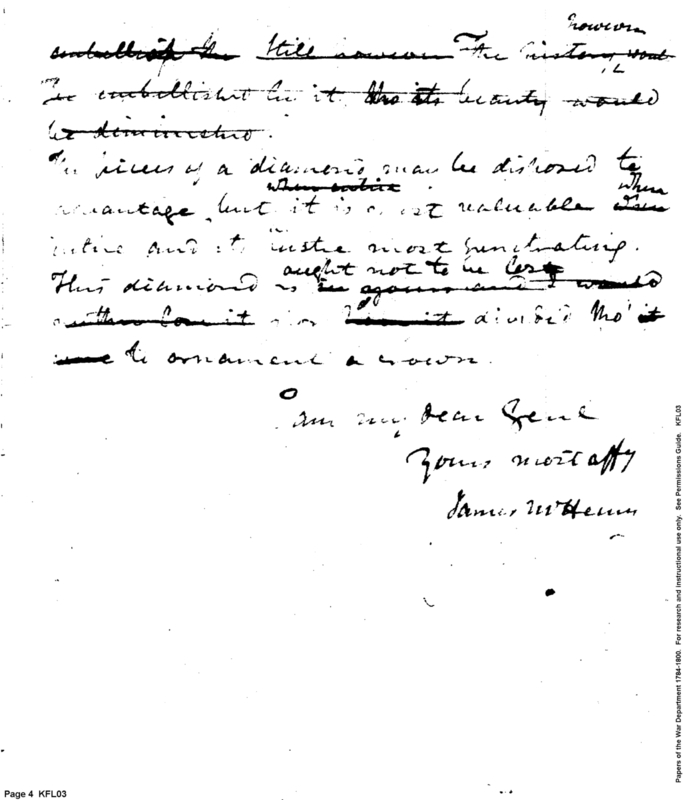 however
embellish the Still however The history, would
To embellished by it tho its beauty would
be diminished.
The pieces of a diamond may be disposed to
when entire when
advantage, but it is most valuable when
entire and its lustre most penetrating.
ought not to be lost
This diamond is and I would
rather lose it nor lose it divided tho' it
were to ornament a crown.
I am my dear Genl
Yours most affy
James McHenry
Papers of the War Department 1784-1800. For research and instructional use only. See Permissions Guide. KFL03
Page 4 KFL03